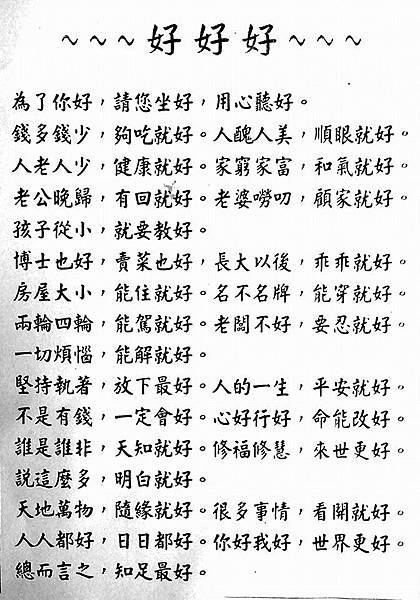 ~~~好好好~~~
為了你好，請您坐好，用心聽好。
錢多錢少，夠吃就好。人醜人美，順眼就好。
人老人少，健康就好。家窮家富，和氣就好。
老公晚歸，有回就好。老婆嘮叨，顧家就好。
孩子從小，就要教好。
博士也好，賣菜也好，長大以後，乖乖就好。
房屋大小，能住就好。名不名牌，能穿就好。
兩輪四輪，能駕就好。老闆不好，要忍就好。
一切煩惱，能解就好。
堅持執著，放下最好。人的一生，平安就好。
不是有錢，一定會好。心好行好，命能改好。
誰是誰非，天知就好。修福修慧，來世更好。
說這麼多，明白就好。
天地萬物，隨緣就好。很多事情，看開就好。
人人都好，日日都好。你好我好，世界更好。
總而言之，知足最好。